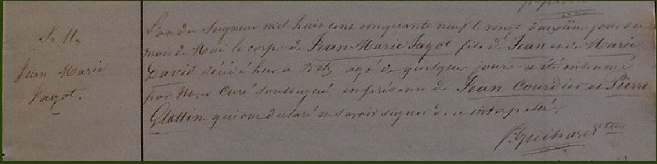 S. 11
Jean Marie
Fayot.
L'an du Seigneur mil huit cent cinquante neuf le vingt deuxième jour du
mois de Mai le corps de Jean Marie Fayot fils de Jean et de Marie
David décédé hier à agé de quelques jours a été inhumé
par Nous Curé soussigné en présence de Jean Courdier et Pierre
Glattin qui ont déclaré ne savoir signer de ce interpellés.